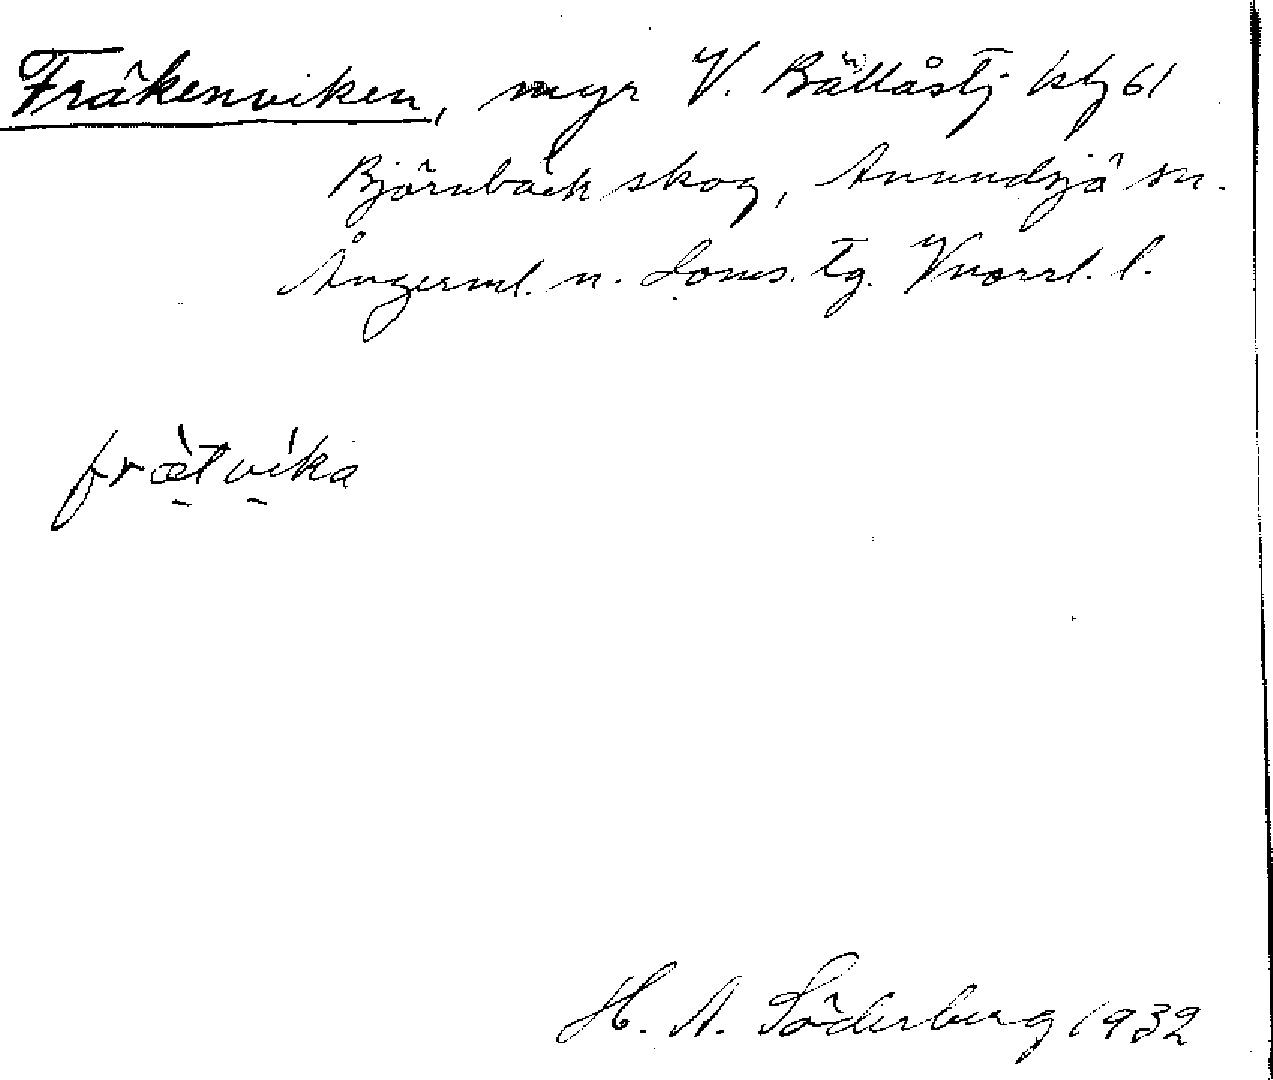 Fräkenviken, myr V. Bällåstj kbj 61
Björnbäck skog, Anundsjö sn.
Ångerml. n. doms. tg. Vnorrl. l.
frætvika
H. A. Söderberg 1932